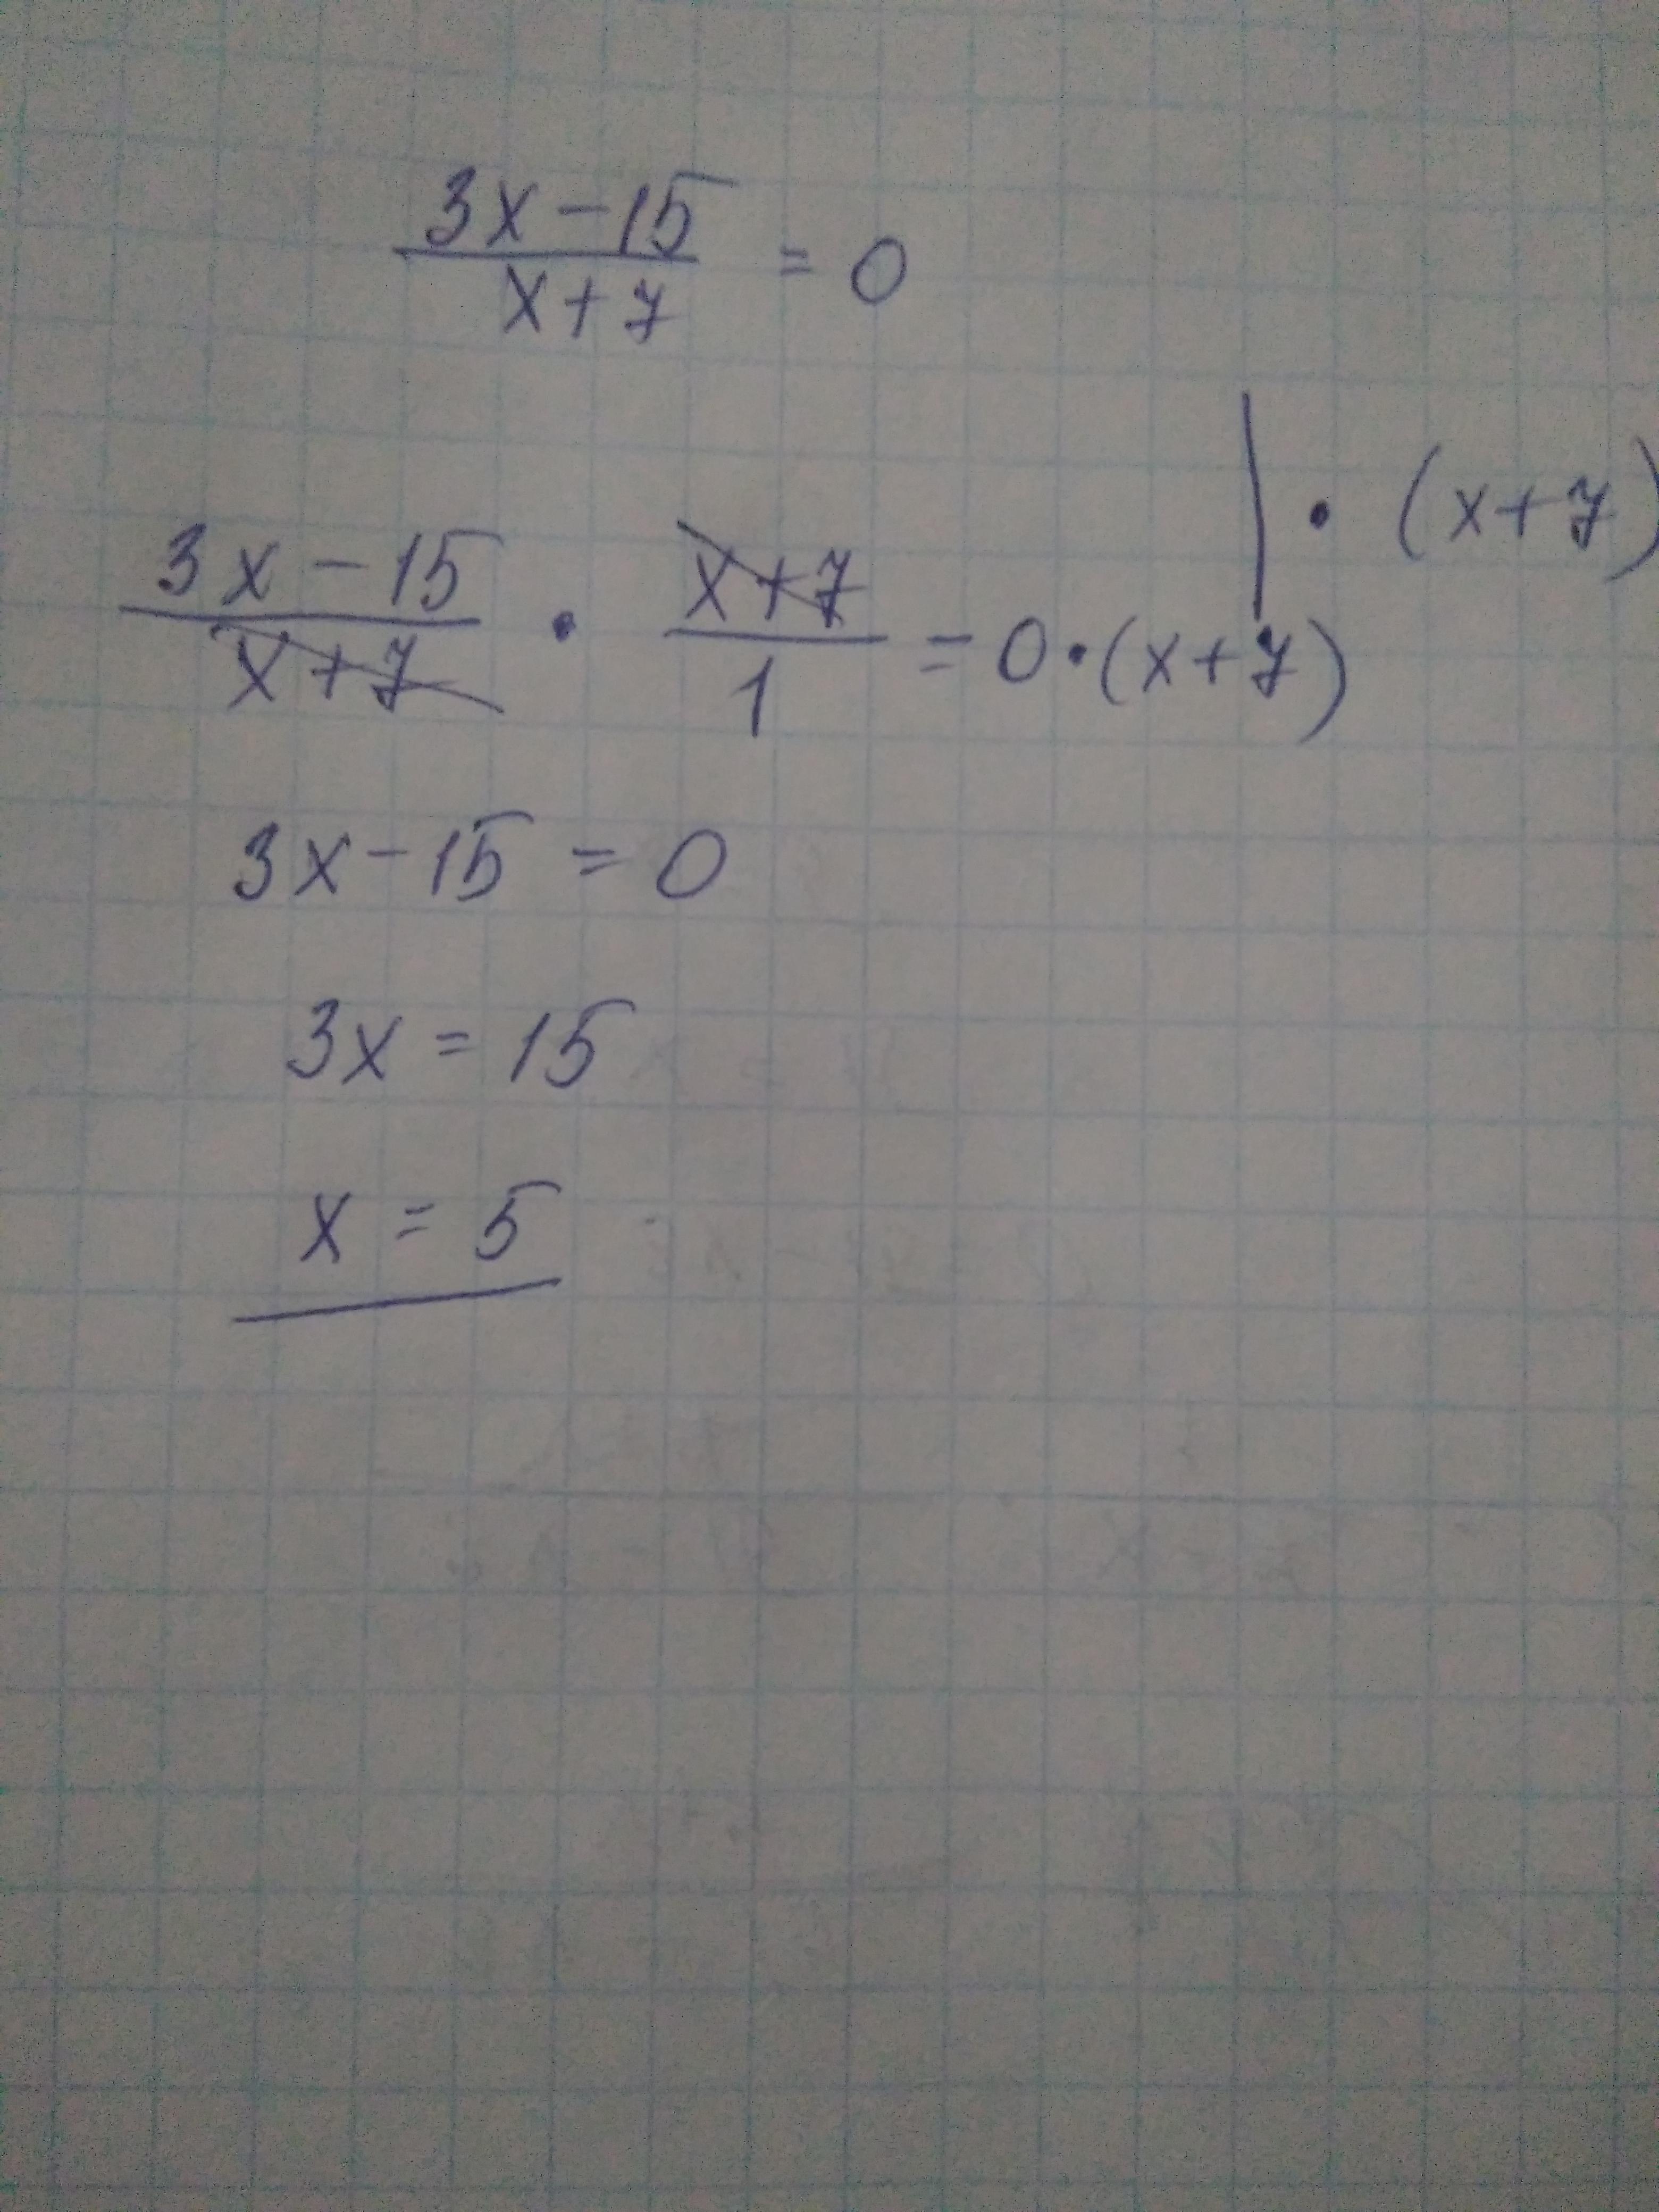 3x-15
x+7 = 0
| • (x+7)
3x-15 • x+7 = 0•(x+7)
x+7 1
3x-15 = 0
3x = 15
x = 5